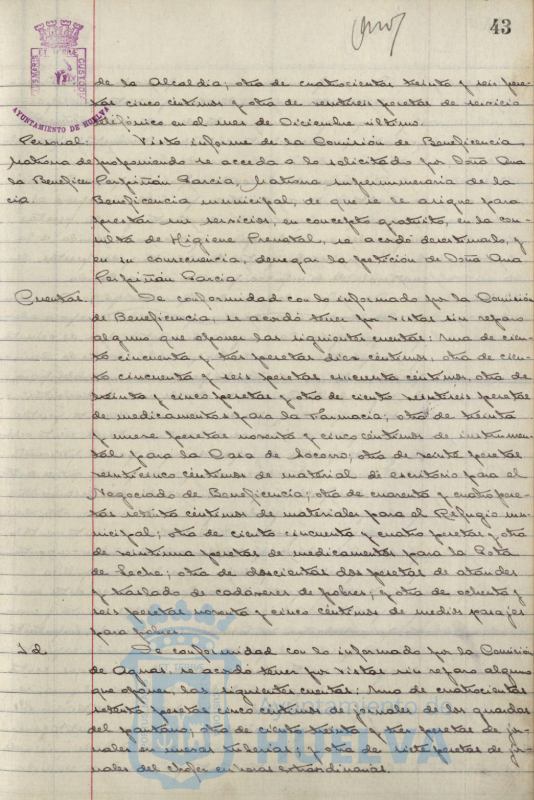 43
AYUNTAMIENTO DE HUELVA
de la Alcaldía; otra de cuatrocientas treinta y seis pese-
tas cinco céntimos y otra de veintiseis pesetas de servicio
telefónico en el mes de Diciembre último.
Personal: Visto informe de la Comisión de Beneficencia
Matrona de proponiendo se acceda a lo solicitado por Doña Ana
la Beneficen Perpiñán García, Matrona supernumeraria de la
cia. Beneficencia municipal, de que se le asigne para
prestar sus servicios, en concepto gratuito, en la con-
sulta de Higiene Prenatal, se acordó desestimarlo, y
en su consecuencia, denegar la petición de Doña Ana
Perpiñán García.
Cuentas. De conformidad con lo informado por la Comisión
de Beneficencia, se acordó tener por vistas sin reparo
alguno que oponer las siguientes cuentas: una de cien-
to cincuenta y tres pesetas diez céntimos, otra de cien-
to cincuenta y seis pesetas cincuenta céntimos, otra de
treinta y cinco pesetas y otra de ciento veintiseis pesetas
de medicamentos para la Farmacia; otra de treinta
y nueve pesetas noventa y cinco céntimos de instrumen-
tal para la Casa de Socorro; otra de veinte pesetas
veinticinco céntimos de material de escritorio para el
Negociado de Beneficencia; otra de cuarenta y cuatro pese-
tas céntimos de materiales para el Refugio mu-
nicipal; otra de ciento cincuenta y cuatro pesetas y otra
de veintiuna pesetas de medicamentos para la Gota
de Leche; otra de doscientas dos pesetas de ataúdes
y traslado de cadáveres de pobres; y otra de ochenta y
seis pesetas noventa y cinco céntimos de medios pasajes
para pobres.
Id. De conformidad con lo informado por la Comisión
de Aguas, se acordó tener por vistas sin reparo alguno
que oponer, las siguientes cuentas: una de cuatrocientas
setenta pesetas cinco céntimos de jornales de los guardas
del pantano; otra de ciento treinta y tres pesetas de jor-
nales en nuevas tuberías; y otra de siete pesetas de jor-
nales del chofer en horas extraordinarias.
Ayuntamiento de
HUELVA